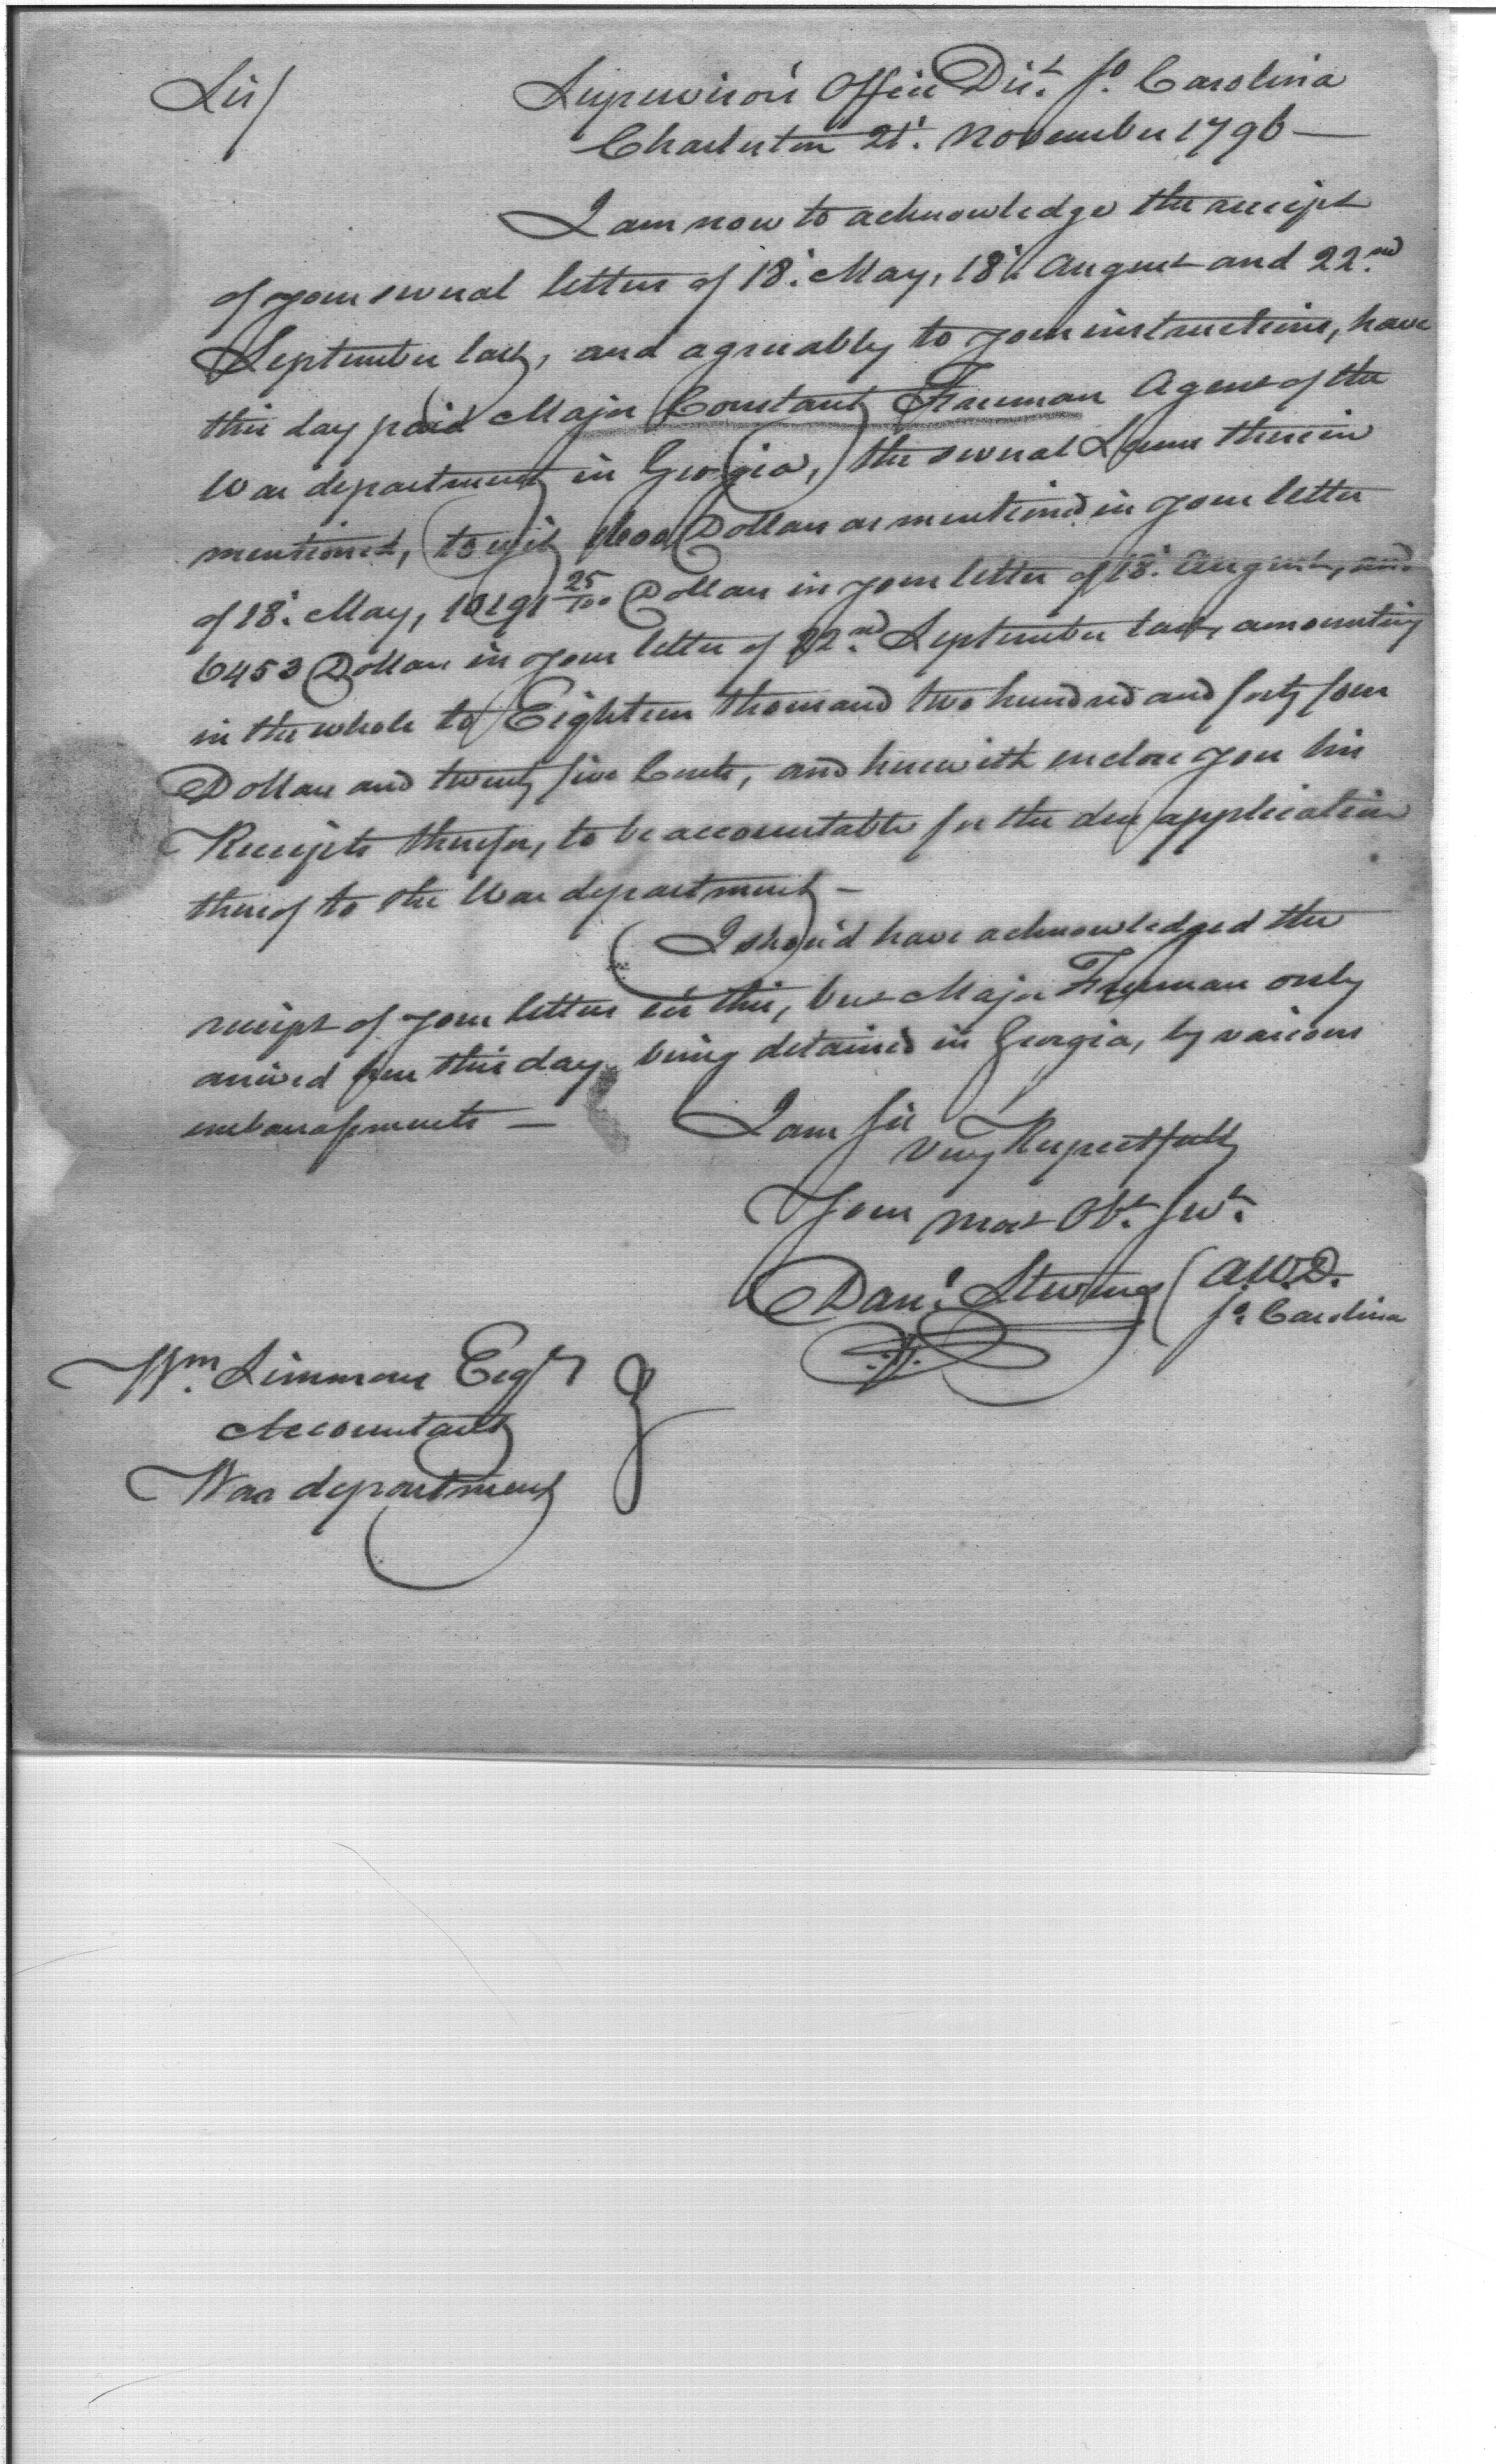 Sir/
Supervisor's Office Dist. So. Carolina
Charleston 21st. November 1796 —
I am now to acknowledge the receipt
of your several letters of 18th. May, 18th. August and 22nd.
September last, and agreeably to your instructions, have
this day paid Major Constant Freeman Agent of the
War department in Georgia, the several Sums therein
mentioned, to wit, 1600 Dollars as mentioned in your letter
of 18th. May, 10191 25/100 Dollars in your letter of 18th. August, and
6453 Dollars in your letter of 22nd. September last, amounting
in the whole to Eighteen thousand two hundred and forty four
Dollars and twenty five Cents, and herewith enclose you his
Receipts therefor, to be accountable for the due application
thereof to the War department —
I shou'd have acknowledged the
receipt of your letters ere this, but Major Freeman only
arrived here this day, being detained in Georgia, by various
embarassments —
I am Sir
Very Respectfully
Your most Obt. Servt.
Danl. Stevens
So. Carolina
Wm. Simmons Esqr
Accountant
War department